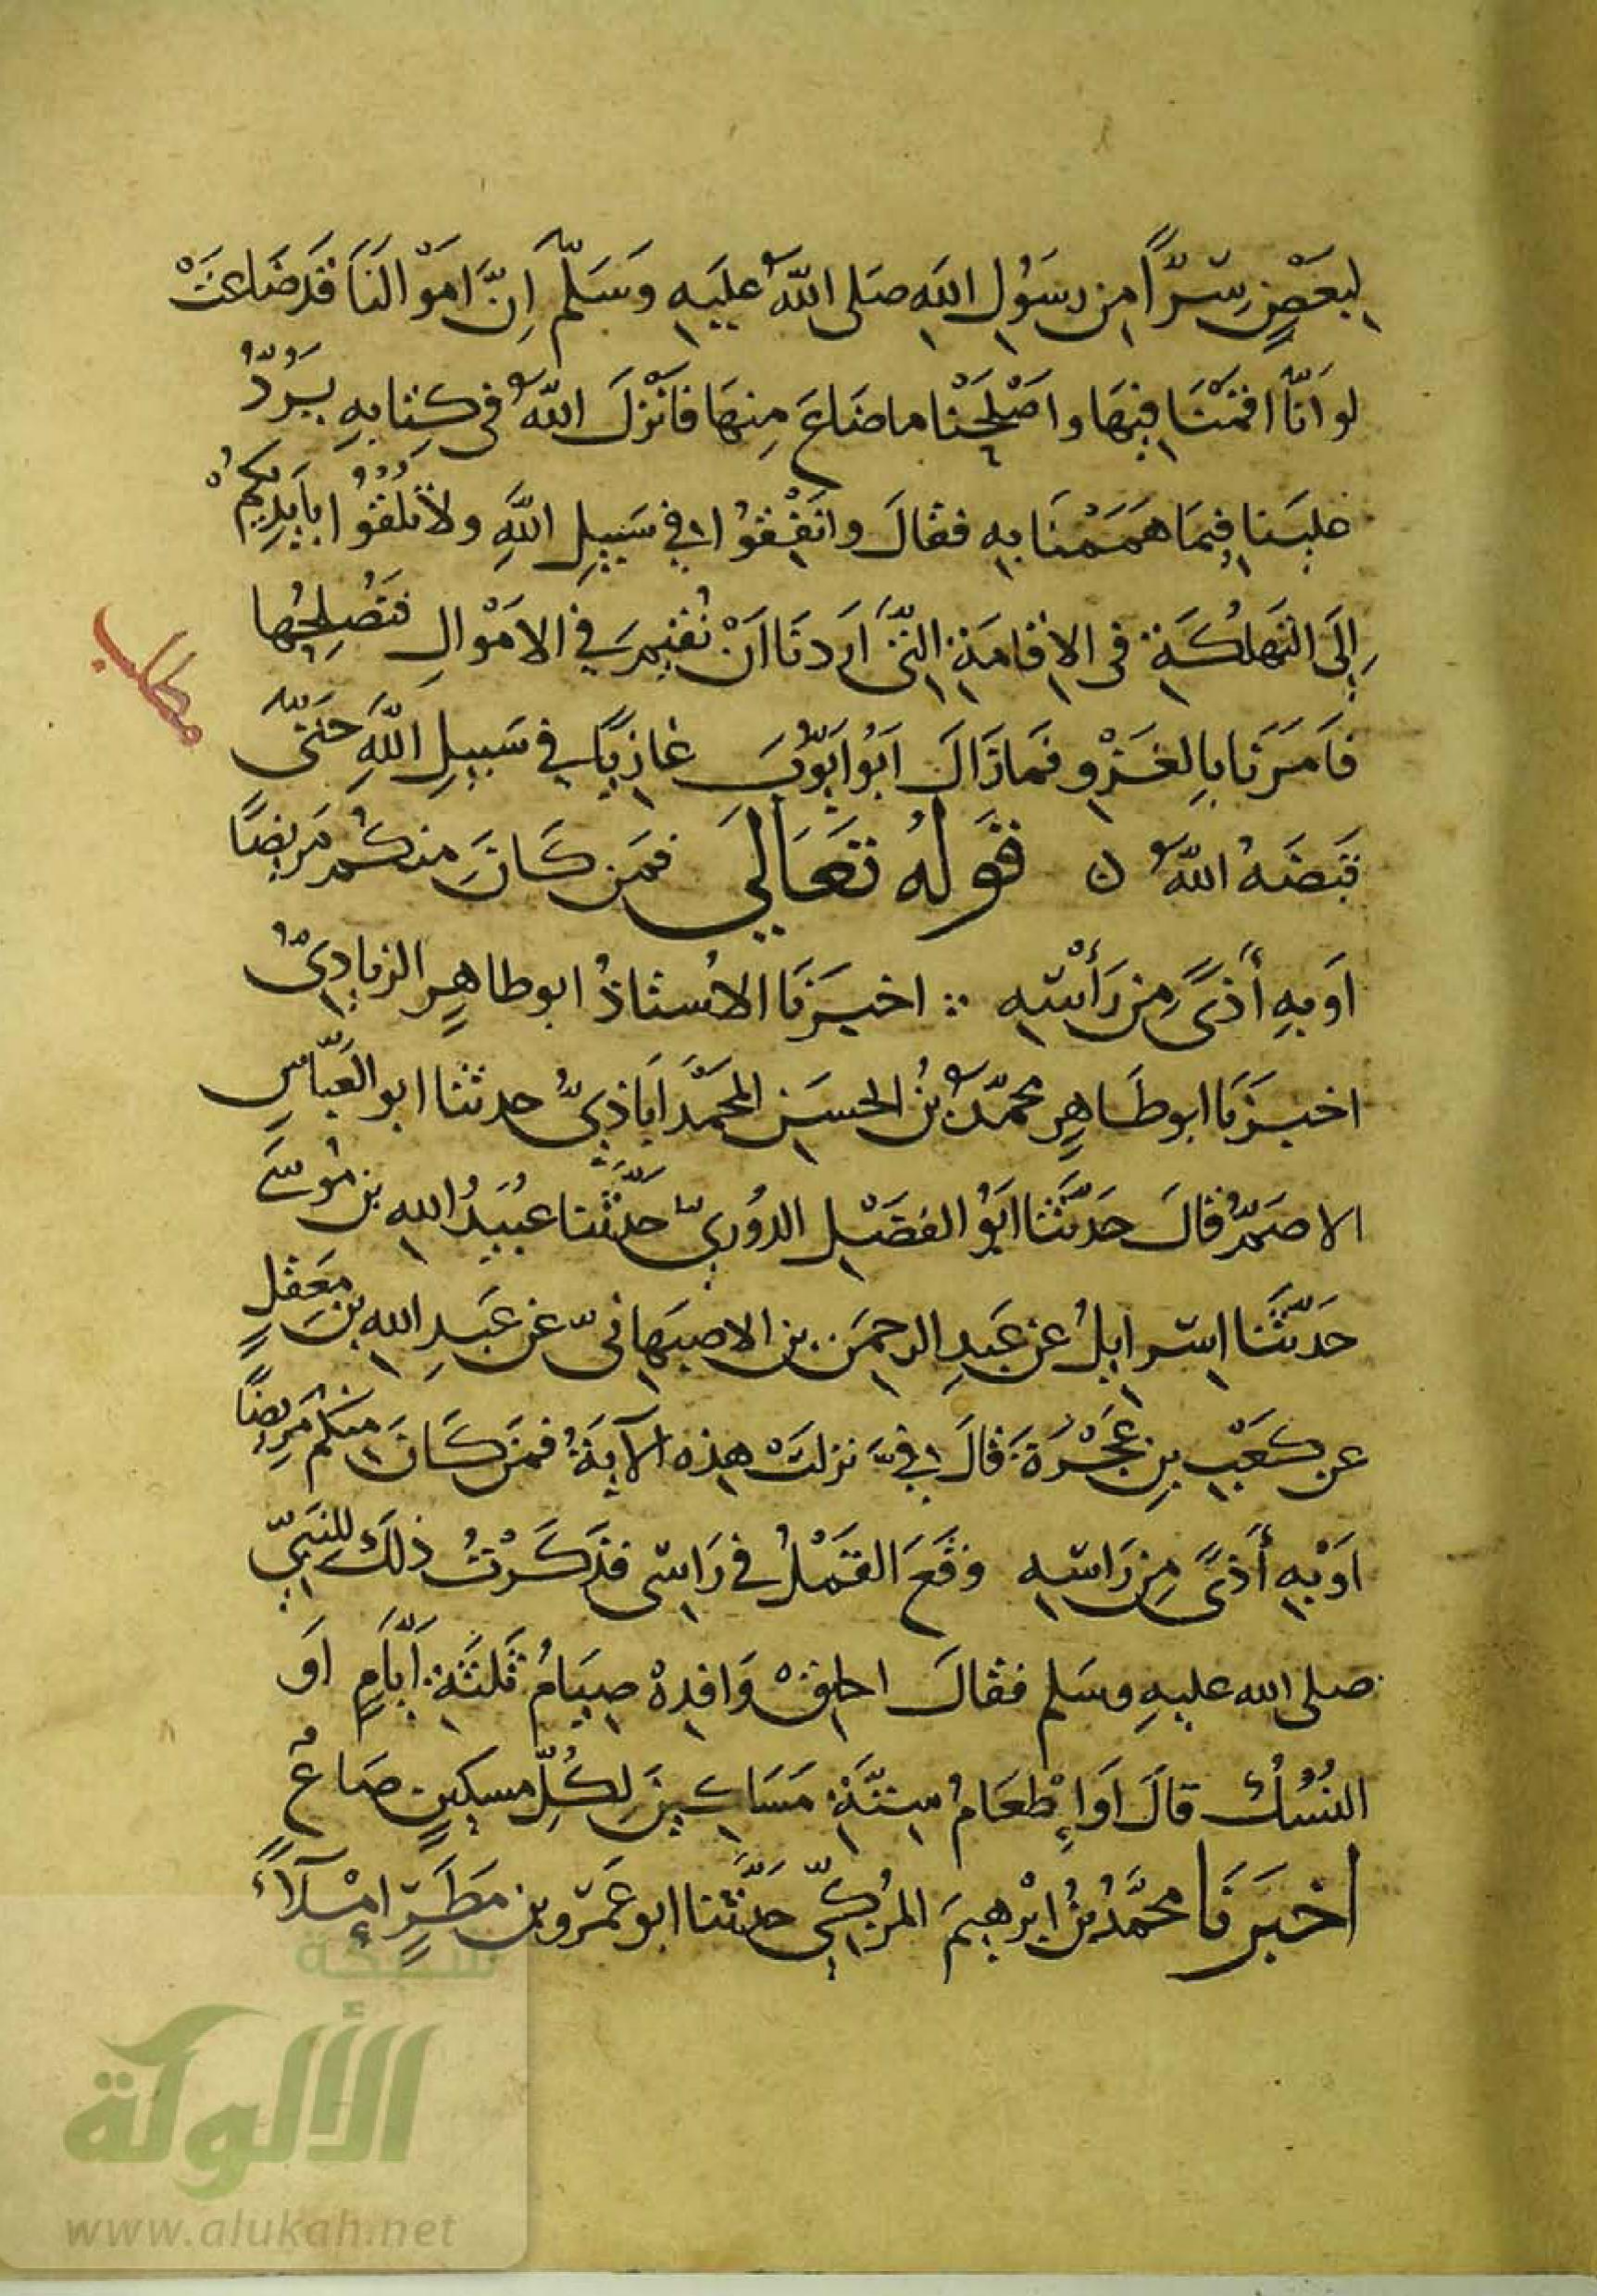 لبَعْضٍ سِرّاً من رسَوُل الله صَلى اللهُ عليَهِ وَسَلّم اِنَّ امَوْالَنَا قَد ضَاعَتْ
لو اَنّا اقمْنَا فيهَا واصْلَحْنا ما ضَاعَ مِنهَا فَاَنْزلَ اللهُ فى كِتابهِ يَرُدُّ
عليَنا فيمَا هَمَمْنَا به فقالَ وانَفْقوُا في سَبيلِ اللهِ ولاَ تُلقوُا بِاَيدِيكُمْ
اِلَى التهَلُكَةِ فى الاِقامَةِ التّى اَردنَا اَنْ نُقيمَ في الامَوْالِ فنَصُلِحُها
فاَمَرَنا بالِغَزْو فمَا زالَ ابَوُ ايَوُّبَ غازياً في سَبيلِ اللهِ حتّى
قَبَضَهُ اللهُ ۞ قَولُهُ تَعَالَى فمَن كانَ منكُم مَريضًا
اَو بهِ أَذىً مِن رَأْسِه ؞ اخبَرَنَا الاسُتاذُ ابو طاهِرٍ الزيادِىُّ
اخبَرَنا ابو طَاهِرٍ محمّدُ بنُ الحسَن المحمَّدَاباذىُّ حدثنا ابو العَبّاسِ
الاصَمُّ قالَ حَدّثَنا ابَوُ الفضَل الدوُرىّ حَدّثَنا عبُيَدُ الله بن مُوسَى
حَدّثَنا اسرايلُ عن عَبدِ الرحمَن بن الاصبَهانىّ عَن عَبدِ الله بن مَعَقلٍ
عن كَعَبِ بنِ عُجْرَةَ قالَ فيَّ نزلتْ هذه الآيَةُ فمَن كَانَ منكُم مَريضًا
اوَ بهِ أَذىً مِن رَاسه وقَعَ القَمْلُ في رَاسى فذَكَرْتُ ذلكَ للنَبىّ
صلى الله عليهِ وسَلم فقالَ احلقْ وَافدِهْ صيَامُ ثلثَةِ اَيّامٍ اَو
النُسُكُ قالَ اَو اِطْعَامُ ستّةِ مَسَاكينَ لِكُلّ مسكينٍ صَاعٌ
اخبَرَنا محمَّدُ بنُ ابرْهيمَ المُزكّىّ حَدّثَنا ابو عَمْرو بن مَطَرٍ إمْلآءً
مطلب
شبكة
الألوكة
www.alukah.net